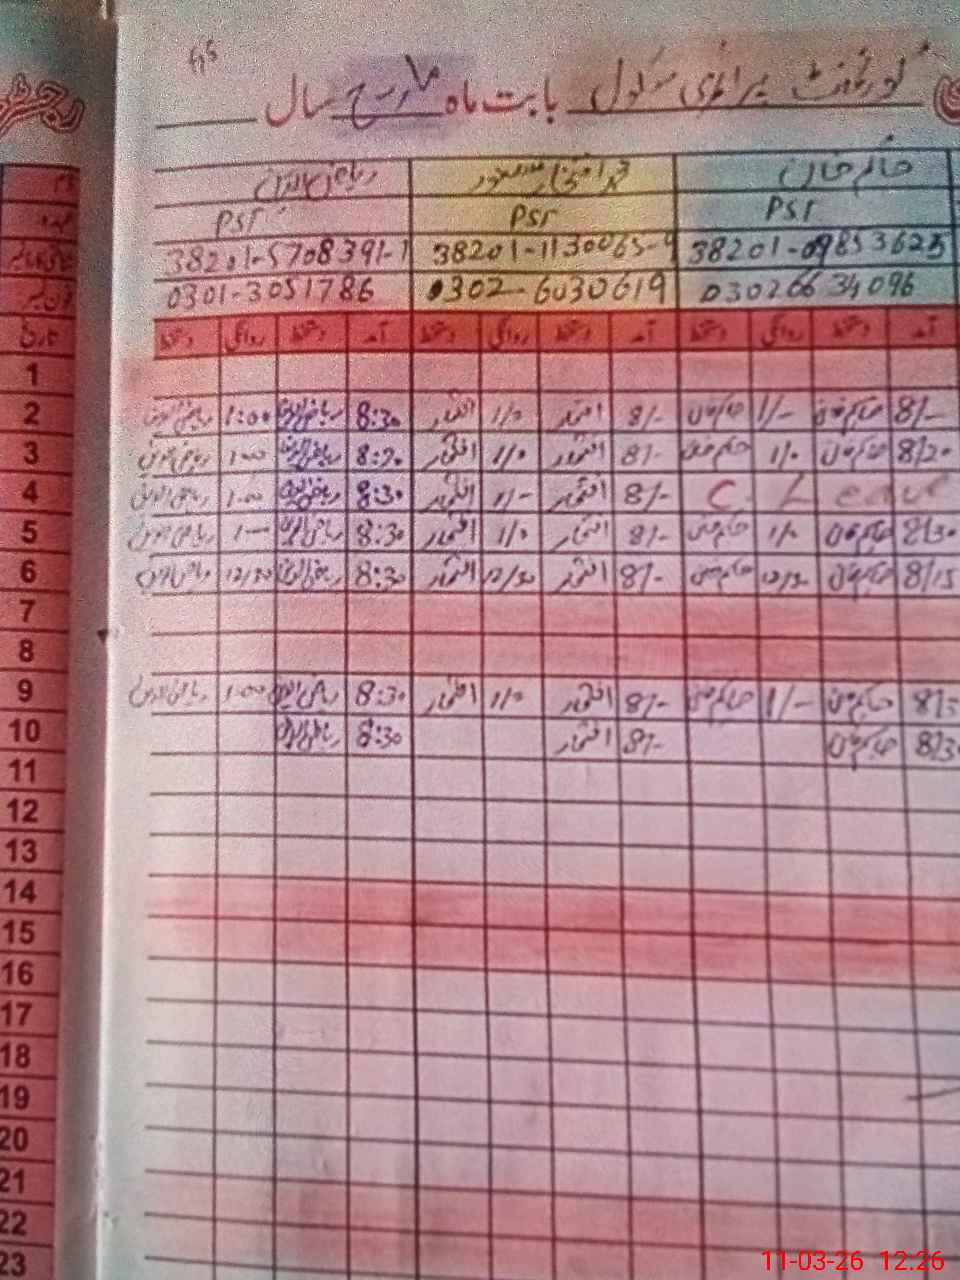 گورنمنٹ پرائمری سکول بابت ماہ مارچ سال
رجسٹر
حاکم خان محمد افتخار ریاض الدین
PST PST PST
38201-0985362 38201-1130065-9 38201-5708391-1
03026634096 0302-6030619 0301-3051786
آمد دستخط روانگی دستخط آمد دستخط روانگی دستخط آمد دستخط روانگی دستخط
تاریخ
1
2 8/- حاکم خان 1/- حاکم خان 8/- افتخار 1/0 افتخار 8:30 ریاض الدین 1:00 ریاض الدین
3 8/20 حاکم خان 1/0 حاکم خان 8/- افتخار 1/0 افتخار ریاض الدین 1:00 ریاض الدین
4 C. Leave 8/- افتخار 1/- افتخار 8:30 ریاض الدین 1:00 ریاض الدین
5 8/30 حاکم خان 1/0 حاکم خان 8/- افتخار 1/0 افتخار 8:30 ریاض الدین ریاض الدین
6 8/15 حاکم خان 12/30 حاکم خان 8/- افتخار 12/30 افتخار 8:30 ریاض الدین 12/30 ریاض الدین
7
8
9 حاکم خان 1/- حاکم خان 8/- افتخار 1/0 افتخار 8:30 ریاض الدین 1:00 ریاض الدین
10 حاکم خان 8/- افتخار 8:30 ریاض الدین
11
12
13
14
15
16
17
18
19
20
21
22
23
11-03-26 12:26